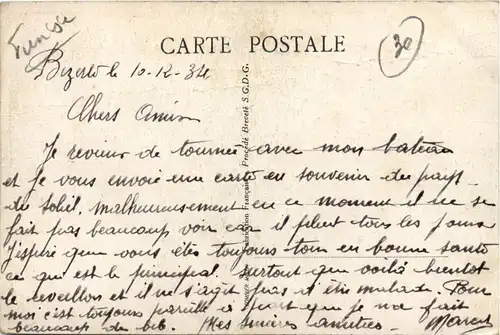 Tunisie
30
CARTE POSTALE
Bizerte le 10-12-34
Chers Amis
Je reviens de tournée avec mon bateau
et je vous envoie une carte en souvenir du pays
du Soleil, malheureusement en ce moment il ne se
fait pas beaucoup voir car il pleut tous les jours
J'espère que vous êtes toujours tous en bonne santé
ce qui est le principal. Surtout que voilà bientôt
le reveillon et il ne s'agit pas d'être malade. Pour
moi c'est toujours pareille à part que je ne fait
beaucoup de Mes sincères amitiés. Marcel
Fabrication Française. Procédé Breveté S.G.D.G.